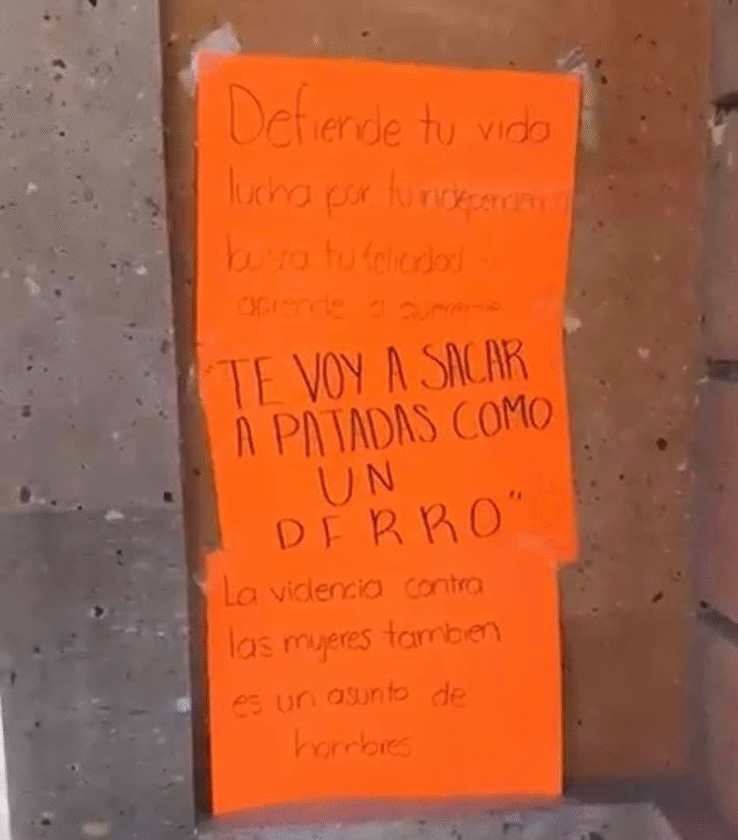 Defiende tu vida
lucha por tu independencia
busca tu felicidad
aprende a quererte
"TE VOY A SACAR
A PATADAS COMO
UN
PERRO"
La violencia contra
las mujeres tambien
es un asunto de
hombres